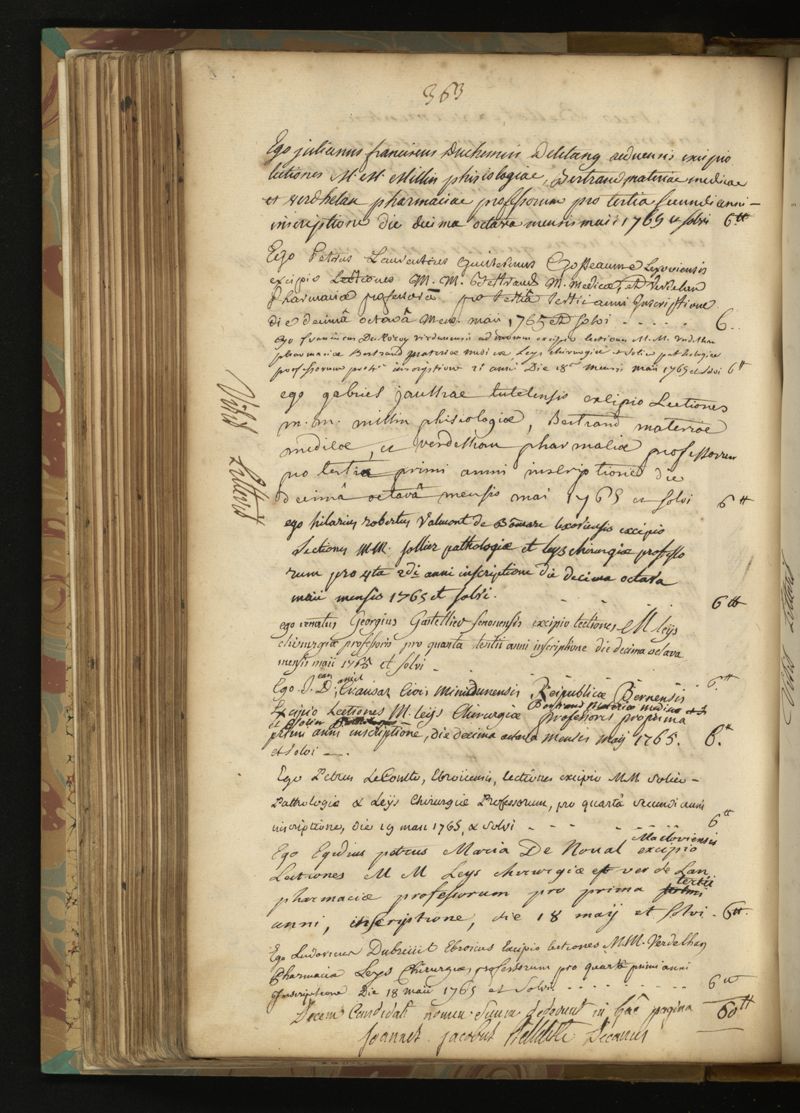 363
Ego julianus franciscus Duchemin Deletang redonensis excipio
lectiones M. M. Millin phisiologiae, Bertrand materiae medicae
et verdhelan pharmaciae professorum pro tertia secundi anni
inscriptione die decima octava mensis maii 1765 et solvi 6 tt
Ego Petrus Laurentius Guilielmus Gosseaume Lexoviensis
excipio Lectiones M. M. Bertrand M. Medicae, et Verdelan
Pharmaciae professorum pro tertiâ tertii anni Inscriptione
die decimâ octavâ Mens. maii 1765 et solvi 6.
ego franciscus Du virdunensis excipio lectiones M. M. verdelhan
pharmaciae Bertrand materiae medicae Leys chirurgiae et solier pathologiae
professorum inscriptione 2i anni Die 18a mensis maii 1765 et solvi 6 tt
ego gabriel jauffrae tutelensis excipio Lectiones
m. m. millin phisiologiae, Bertrand materiae
medicae, et verdelhan pharmaciae professorum
pro tertia primi anni inscriptione die
decimâ octavâ mensis maii 1765 et solvi 6 tt
ego hilarius robertus Valmont de Bomare excipio
Lectiones M.M. sollier pathologiae et leys chirurgiae professo
rum pro 4ta 2di anni inscriptione die decima octava
maii mensis 1765 et solvi. 6 tt
ego renatus Georgius Gastellier senonensis excipio lectiones M leys
chirurgiae professoris pro quarta tertii anni inscriptione die decima octava
mensis maii 1765 et solvi 6. tt
Ego J. D. Crausaz Civis Minidunensis Reipublicae Bernensis
Excipio Lectiones M. leys Chirurgiae Bertrand materiae medicae
et Solier professoris pro prima
primi anni inscriptione, die decima octava mensis maij 1765. 6. tt
et solvi
Ego Petrus LeComte, Ebroicensis, lectiones excipio MM Solier
Pathologiae & Leÿs Chirurgiae Professorum, pro quartâ secundi anni
inscriptione, die 19 maii 1765, & solvi 6 tt
Ego Egidius petrus Maria De Noual Macloviensis excipio
Lectiones M M Leys chirurgiae et verdelan
pharmaciae professorum pro prima tertii
anni, inscriptione, die 18 maij et solvi 6 tt.
Ego Ludovicus Ebroicus Excipio lectiones M.M. Verdelhan
Pharmacia Leys Chirurgiae, professorum pro quarta primi anni
Inscriptione Die 18 maii 1765 et Solvi 6 tt
Decem Candidati nomen suum dederunt in hac pagina 60 tt
Joannes jacobus Belleteste Decanus